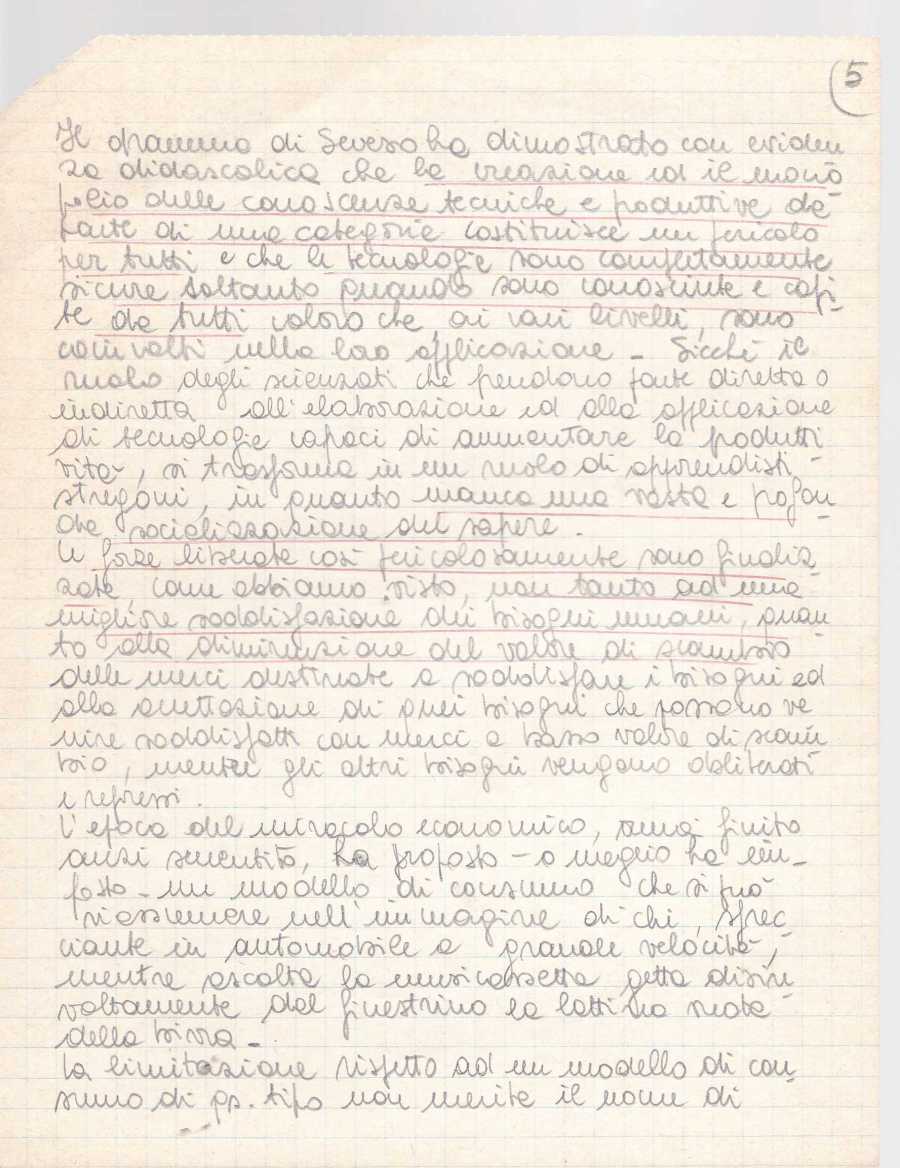 5
Il dramma di Seveso ha dimostrato con eviden
za didascalica che la creazione ed il mono
polio delle conoscenze tecniche e produttive da
parte di una categoria costituisce un pericolo
per tutti e che le tecnologie sono completamente
sicure soltanto quando sono conosciute e capi-
te da tutti coloro che, ai vari livelli, sono
coinvolti nella loro applicazione - Sicché il
ruolo degli scienziati che prendono parte diretta o
indiretta all'elaborazione ed alla applicazione
di tecnologie capaci di aumentare la produtti
vità, si trasforma in un ruolo di apprendisti -
stregoni, in quanto manca una vasta e profon
da socializzazione del sapere.
Le forze liberate così pericolosamente sono finaliz
zate, come abbiamo visto, non tanto ad una
migliore soddisfazione dei bisogni umani, quan
to alla diminuzione del valore di scambio
delle merci destinate a soddisfare i bisogni ed
alla accettazione di quei bisogni che possono ve
nire soddisfatti con merci a basso valore di scam
bio, mentre gli altri bisogni vengono obliterati
e repressi.
L'epoca del miracolo economico, ormai finito
anzi smentito, ha proposto - o meglio ha im-
posto - un modello di consumo che si può
riassumere nell'immagine di chi, sfrec
ciante in automobile a grande velocità,
mentre ascolta la musicassetta getta disin
voltamente dal finestrino la lattina vuota
della birra -
La limitazione rispetto ad un modello di con
sumo di qs. tipo non merita il nome di